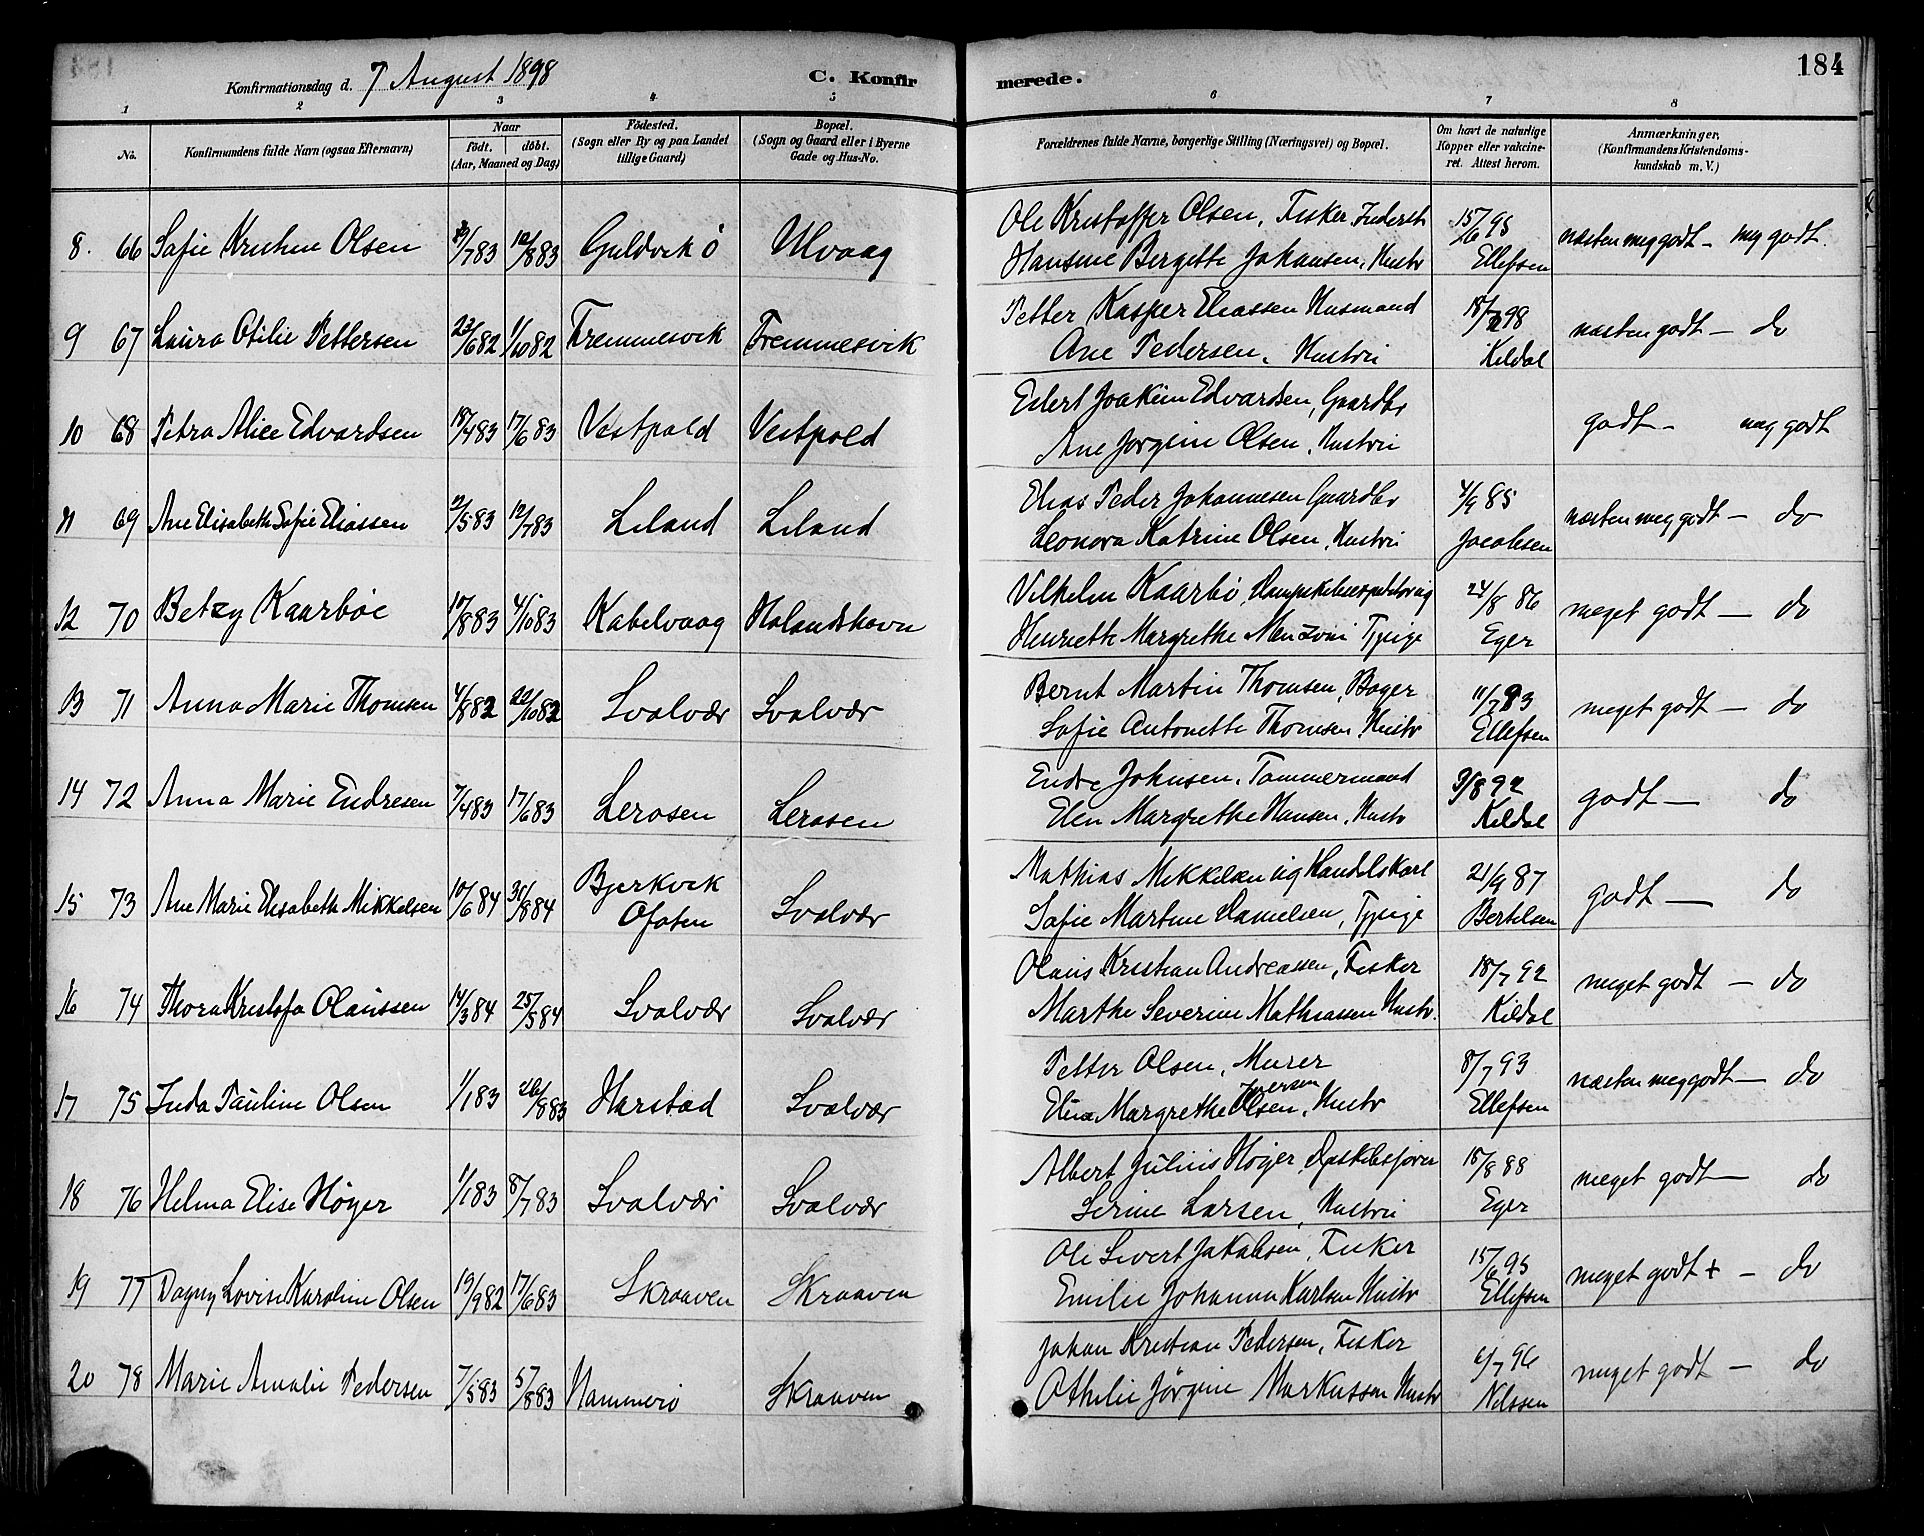 184
Konfirmationsdag d. 7 August 1898
C. Konfirmerede.
1 2 3 4 5 6 7 8
No. Konfirmandens fulde Navn (ogsaa Efternavn)
Naar født. døbt. (Aar, Maaned og Dag)
Födested. (Sogn eller By og paa Landet tillige Gaard)
Bopæl. (Sogn og Gaard eller i Byerne Gade og Hus-No.
Forældrenes fulde Navne, borgerlige Stilling (Næringsvei) og Bopæl.
Om havt de naturlige Kopper eller vakcineret. Attest herom.
Anmærkninger, (Konfirmandens Kristendomskundskab m. V.)
8. 66 Sofie Kristine Olsen /783 12/883 Guldvik ö Ulvaag Ole Kristoffer Olsen, Fisker 15/6 95 næsten meg godt - meg godt.
Hansine Bergette Johansen, Hustr Ellefsen
9 67 Laura Otilie Pettersen 23/682 1/1082 Fremmesvik Fremmesvik Petter Kasper Eliassen Husmand 18/7 98 næsten godt - do
Ane Pedersen, Hustru Kildal
10 68 Petra Alice Edvardsen 18/483 17/683 Vestpold Vestpold Edert Joakim Edvardsen, Gaardbr godt - meg godt
Ane Jørgine Olsen, Hustru
11 69 Ane Elisabeth Sofie Eliassen 2/583 12/783 Liland Liland Elias Peder Johannesen Gaardbr 4/9 85 næsten meg godt - do
Leonora Katrine Olsen, Hustru Jacobsen
12 70 Betzy Kaarbøe 17/883 4/1083 Kabelvaag Holandshavn Vilhelm Kaarbö, Dampskibsexpeditör ug 24/8 86 meget godt - do
Henriette Margrethe Menzoni Tjpige Eger
13 71 Anna Marie Thomsen 4/882 22/1082 Svolvær Svolvær Bernt Martin Thomsen, Bager 11/7 83 meget godt - do
Sofie Antonette Thomsen, Hustr Ellefsen
14 72 Anna Marie Endresen 7/483 17/683 Lerosen Lerosen Endre Johnsen, Tømmermand 3/8 92 godt - do
Elen Margrethe Hansen, Hustr Kildal
15 73 Ane Marie Elisabeth Mikkelsen 10/684 31/884 Bjerkvik Ofoten Svolvær Mathias Mikkelsen ug Handelskarl 21/9 87 godt - do
Sofie Martine Danielsen, Tjpige Bertelsen
16 74 Thora Kristofa Olaussen 14/384 25/584 Svolvær Svolvær Olaus Kristian Andreassen, Fisker 18/7 92 meget godt - do
Marthe Severine Mathiassen Hustr. Kildal
17 75 Inda Pauline Olsen 1/183 26/883 Harstad Svolvær Petter Olsen, Murer 8/7 93 næsten meg godt - do
Elina Margrethe Olsen, Hustr Ellefsen
18 76 Helma Elise Höyer 1/183 8/783 Svolvær Svolvær Albert Julius Höyer, Dpskibsfører 18/8 88 meget godt - do
Serine Larsen, Hustru Eger
19 77 Dagny Lovise Karoline Olsen 19/982 17/683 Skraaven Skraaven Ole Sivert Jakobsen, Fisker 15/6 95 meget godt + - do
Emilie Johanna Karlsen Hustr Ellefsen
20 78 Marie Amalie Pedersen 7/583 5/883 Hammerö Skraaven Johan Kristian Pedersen, Fisker 6/7 96 meget godt - do
Othilie Jörgine Markussen Hustr Nilssen